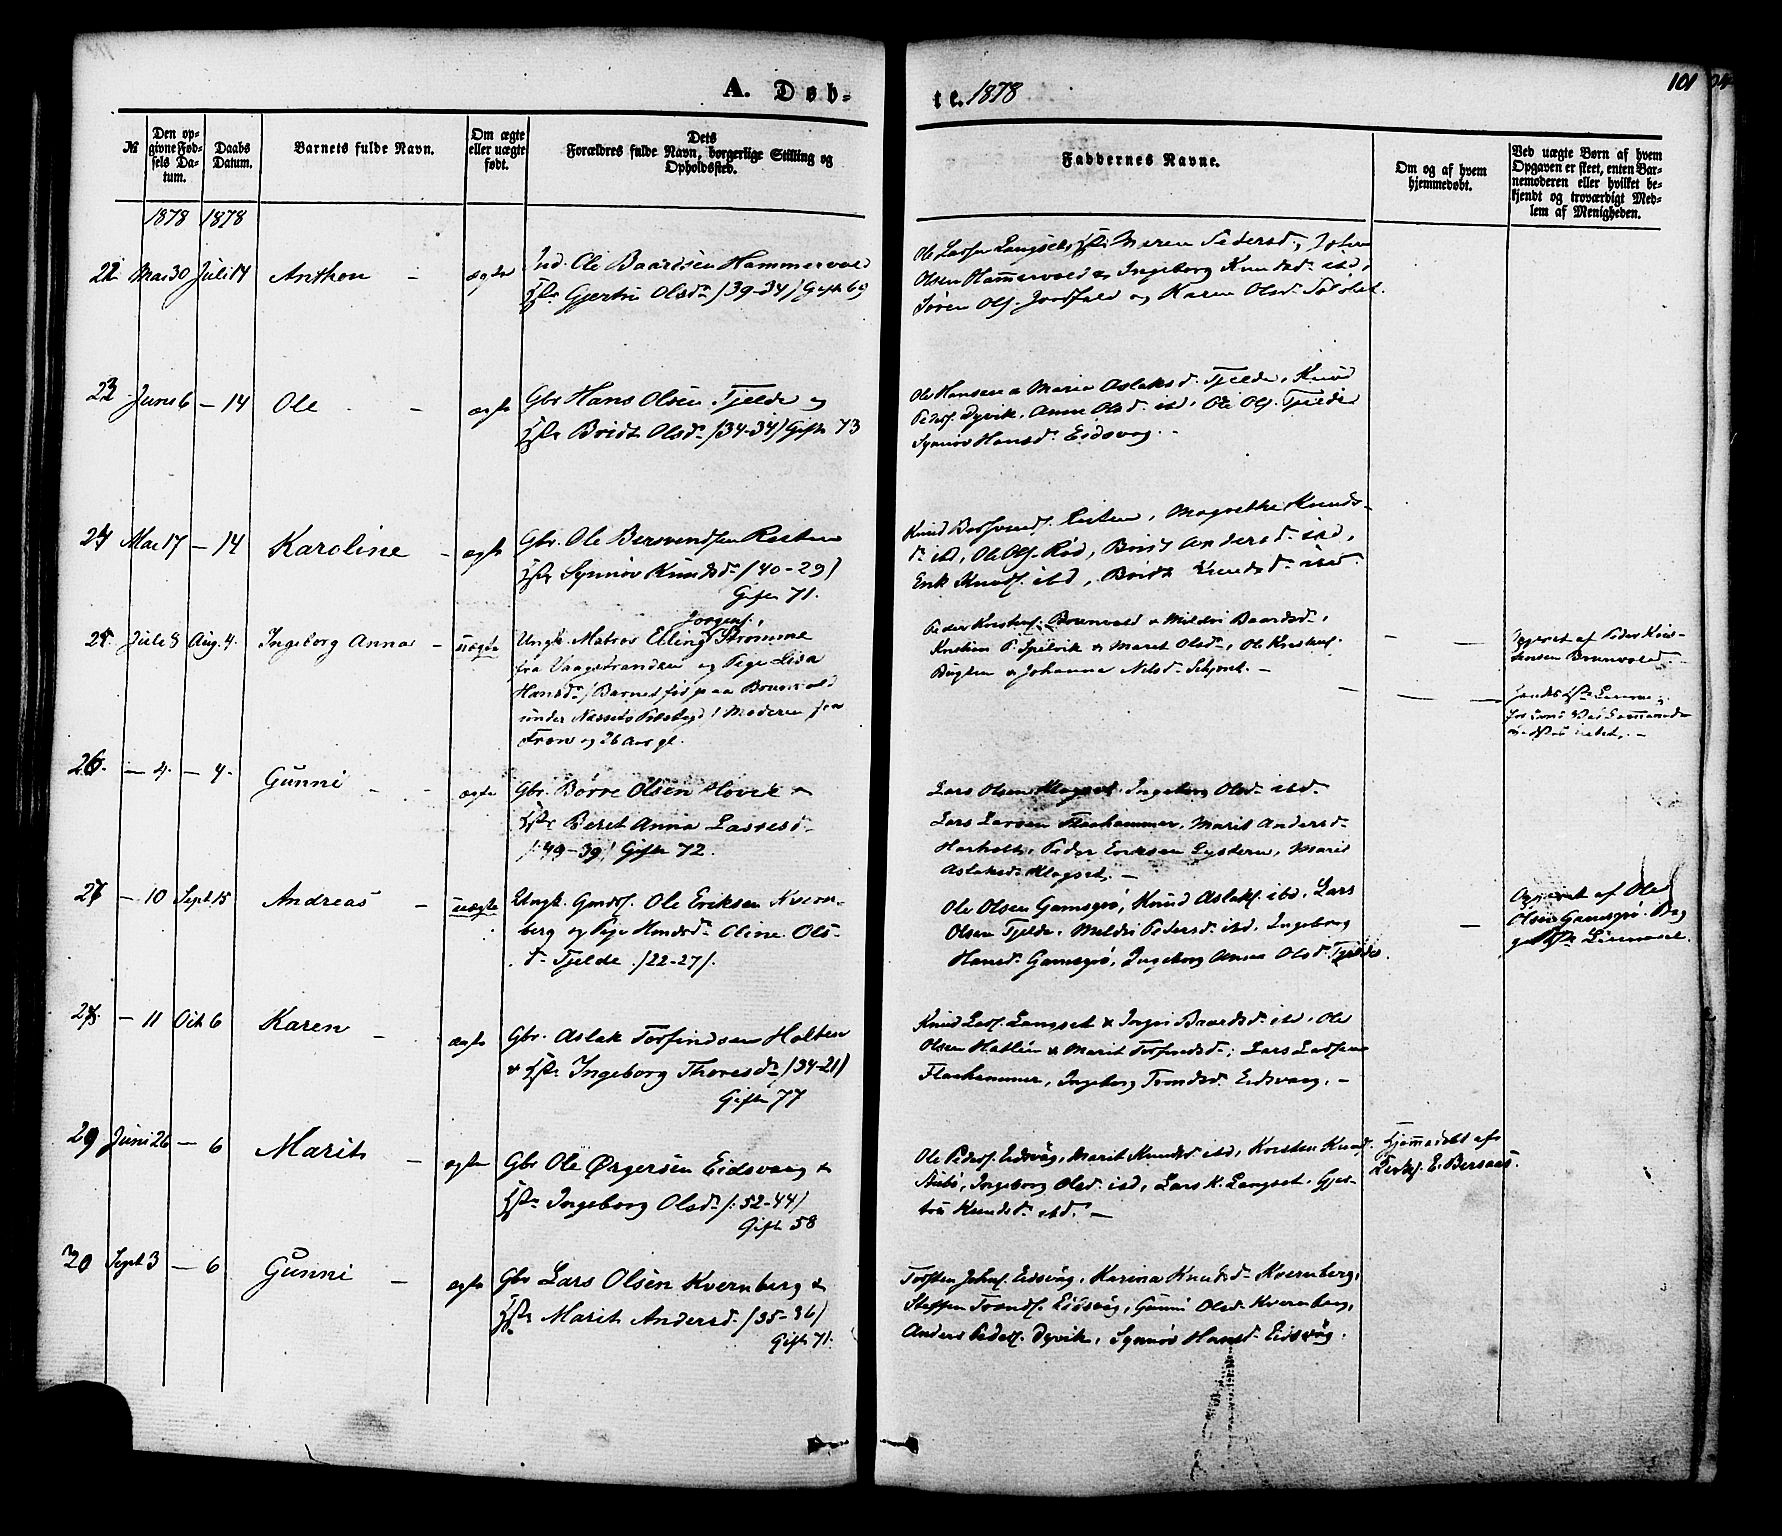 A. Døb-
te. 1878
101
№
Den opgivne Fødsels Datum.
Daabs Datum.
Barnets fulde Navn.
Om ægte eller uægte født.
Dets Forældres fulde Navn, borgerlige Stilling og Opholdssted.
Faddernes Navne.
Om og af hvem hjemmedøbt.
Ved uægte Børn af hvem Opgaven er skeet, enten Barnemoderen eller hvilket bekjendt og troværdigt Medlem af Menigheden.
1878 1878
22 Mai 30 Juli 14 Anthon - ægte
Ind. Ole Baardsen Hammervold
Hst Gjertru Olsdr /39-34/ Gift 69
Ole Larsen Langset, Hst. Maren Pedersd.,
Olsen Hammervold & Ingeborg Knudsd. ibd,
Søren Ols. og Karen Olsd.
23 Juni 6 - 14 Ole - ægte
Gbr Hans Olsen Tjelde og
Hst Bridt Olsdr /34-34/ Gifte 73
Ole Hansen & Maria Aslaksd. Tjelde, Knud
Peders. Dyvik, Anne Olsd. ibd, Ole Ols. Tjelde
Synnøv Hansd. Eidsvaag. -
24 Mai 17 - 14 Karoline - ægte
Gbr. Ole Bersvendsen
Hst Synnøv Knudsdr /40-29/
Gifte 71.
Knud Bersvends. Magrethe Knuds-
d. ibd, Ole Ols. Rød, Brit Andersd. ibd,
Erik Knuds. ibd, Bridt Knudsd. ibd.
25 Juli 8 Aug. 4. Ingeborg Anna - uægte
Jørgens.
Ungk. Matros Elling Strømme
fra Vaagstranden og Pige Lisa
Hansdr / Barnet fød paa Brunvold
under Næssets Præstegd / Moderen fra
og 26 Aar gl.
Peder Kristens. Brunvold & Mildri Baardsd.,
Kristian P. Spilvik & Maret Olsd., Ole
Bugten & Johanna Nilsd.
Opgivet af Peder Kris-
tensen Brunvold.
26. - 4. - 4. Gunni - - ægte
Gbr. Børre Olsen Høvik &
Hst Beret Anna Larsesd.
/:49-39/ Gifte 72.
Lars Olsen Klogset, Ingeborg Olsd. ibd.
Lars Larsen Flaahammer, Marit Andersd.
Peder Eriksen Marit
Aslaksd. Klogset. -
27 - 10 Sept 15 Andreas - uægte
Ungk. Gmds. Ole Eriksen Kvern-
berg og Pige Oline Ols-
d. Tjelde /22-27/.
Ole Olsen Gamsgrø, Knud Aslaks. ibd, Lars
Olsen Tjelde, Mildri Pedersd. ibd, Ingeborg
Hansd. Gamsgrø, Ingeborg Anna Olsd. Tjelde.
Opgivet af Ole
Olsen Gamsgrø.
28. - 11 Oct 6 Karen - ægte
Gbr. Aslak Torfindsen Holten
& Hst. Ingeborg Thoresdr /34-21/
Gifte 77
Knud Lars. Langset & Ingri Baardsd. ibd, Ole
Olsen Hatlen & Marit Torfindsd., Lars Larsen
Flaahammer, Ingeborg Trondsd. Eidsvaag. -
29 Juni 26 - 6 Marit - ægte
Gbr Ole Ørgersen Eidsvaag &
Hst. Ingeborg Olsdr /:52-44/
Gift 58
Ole Peders. Eidsvåg, Marit Knudsd. ibd, Kristen Knuds.
Ingeborg Olsd. ibd, Lars K. Langset, Gjer-
tru Knudsd. ibd. -
Hjemmedøbt af
E. Bersaas.
30 Sept 3 - 6 Gunni - ægte
Gbr Lars Olsen Kvernberg &
Hst Marit Andersd. /35-36/
Gift 71.
Torsten Johns. Eidsvåg, Karina Knudsd. Kvernberg,
Steffen Tronds. Eidsvåg, Gunni Olsd. Kvernberg,
Anders Peders. Dyvik, Synnøv Hansd. Eidsvåg.